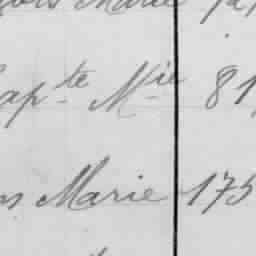 Marie
apte Mie 81
ns Marie 175